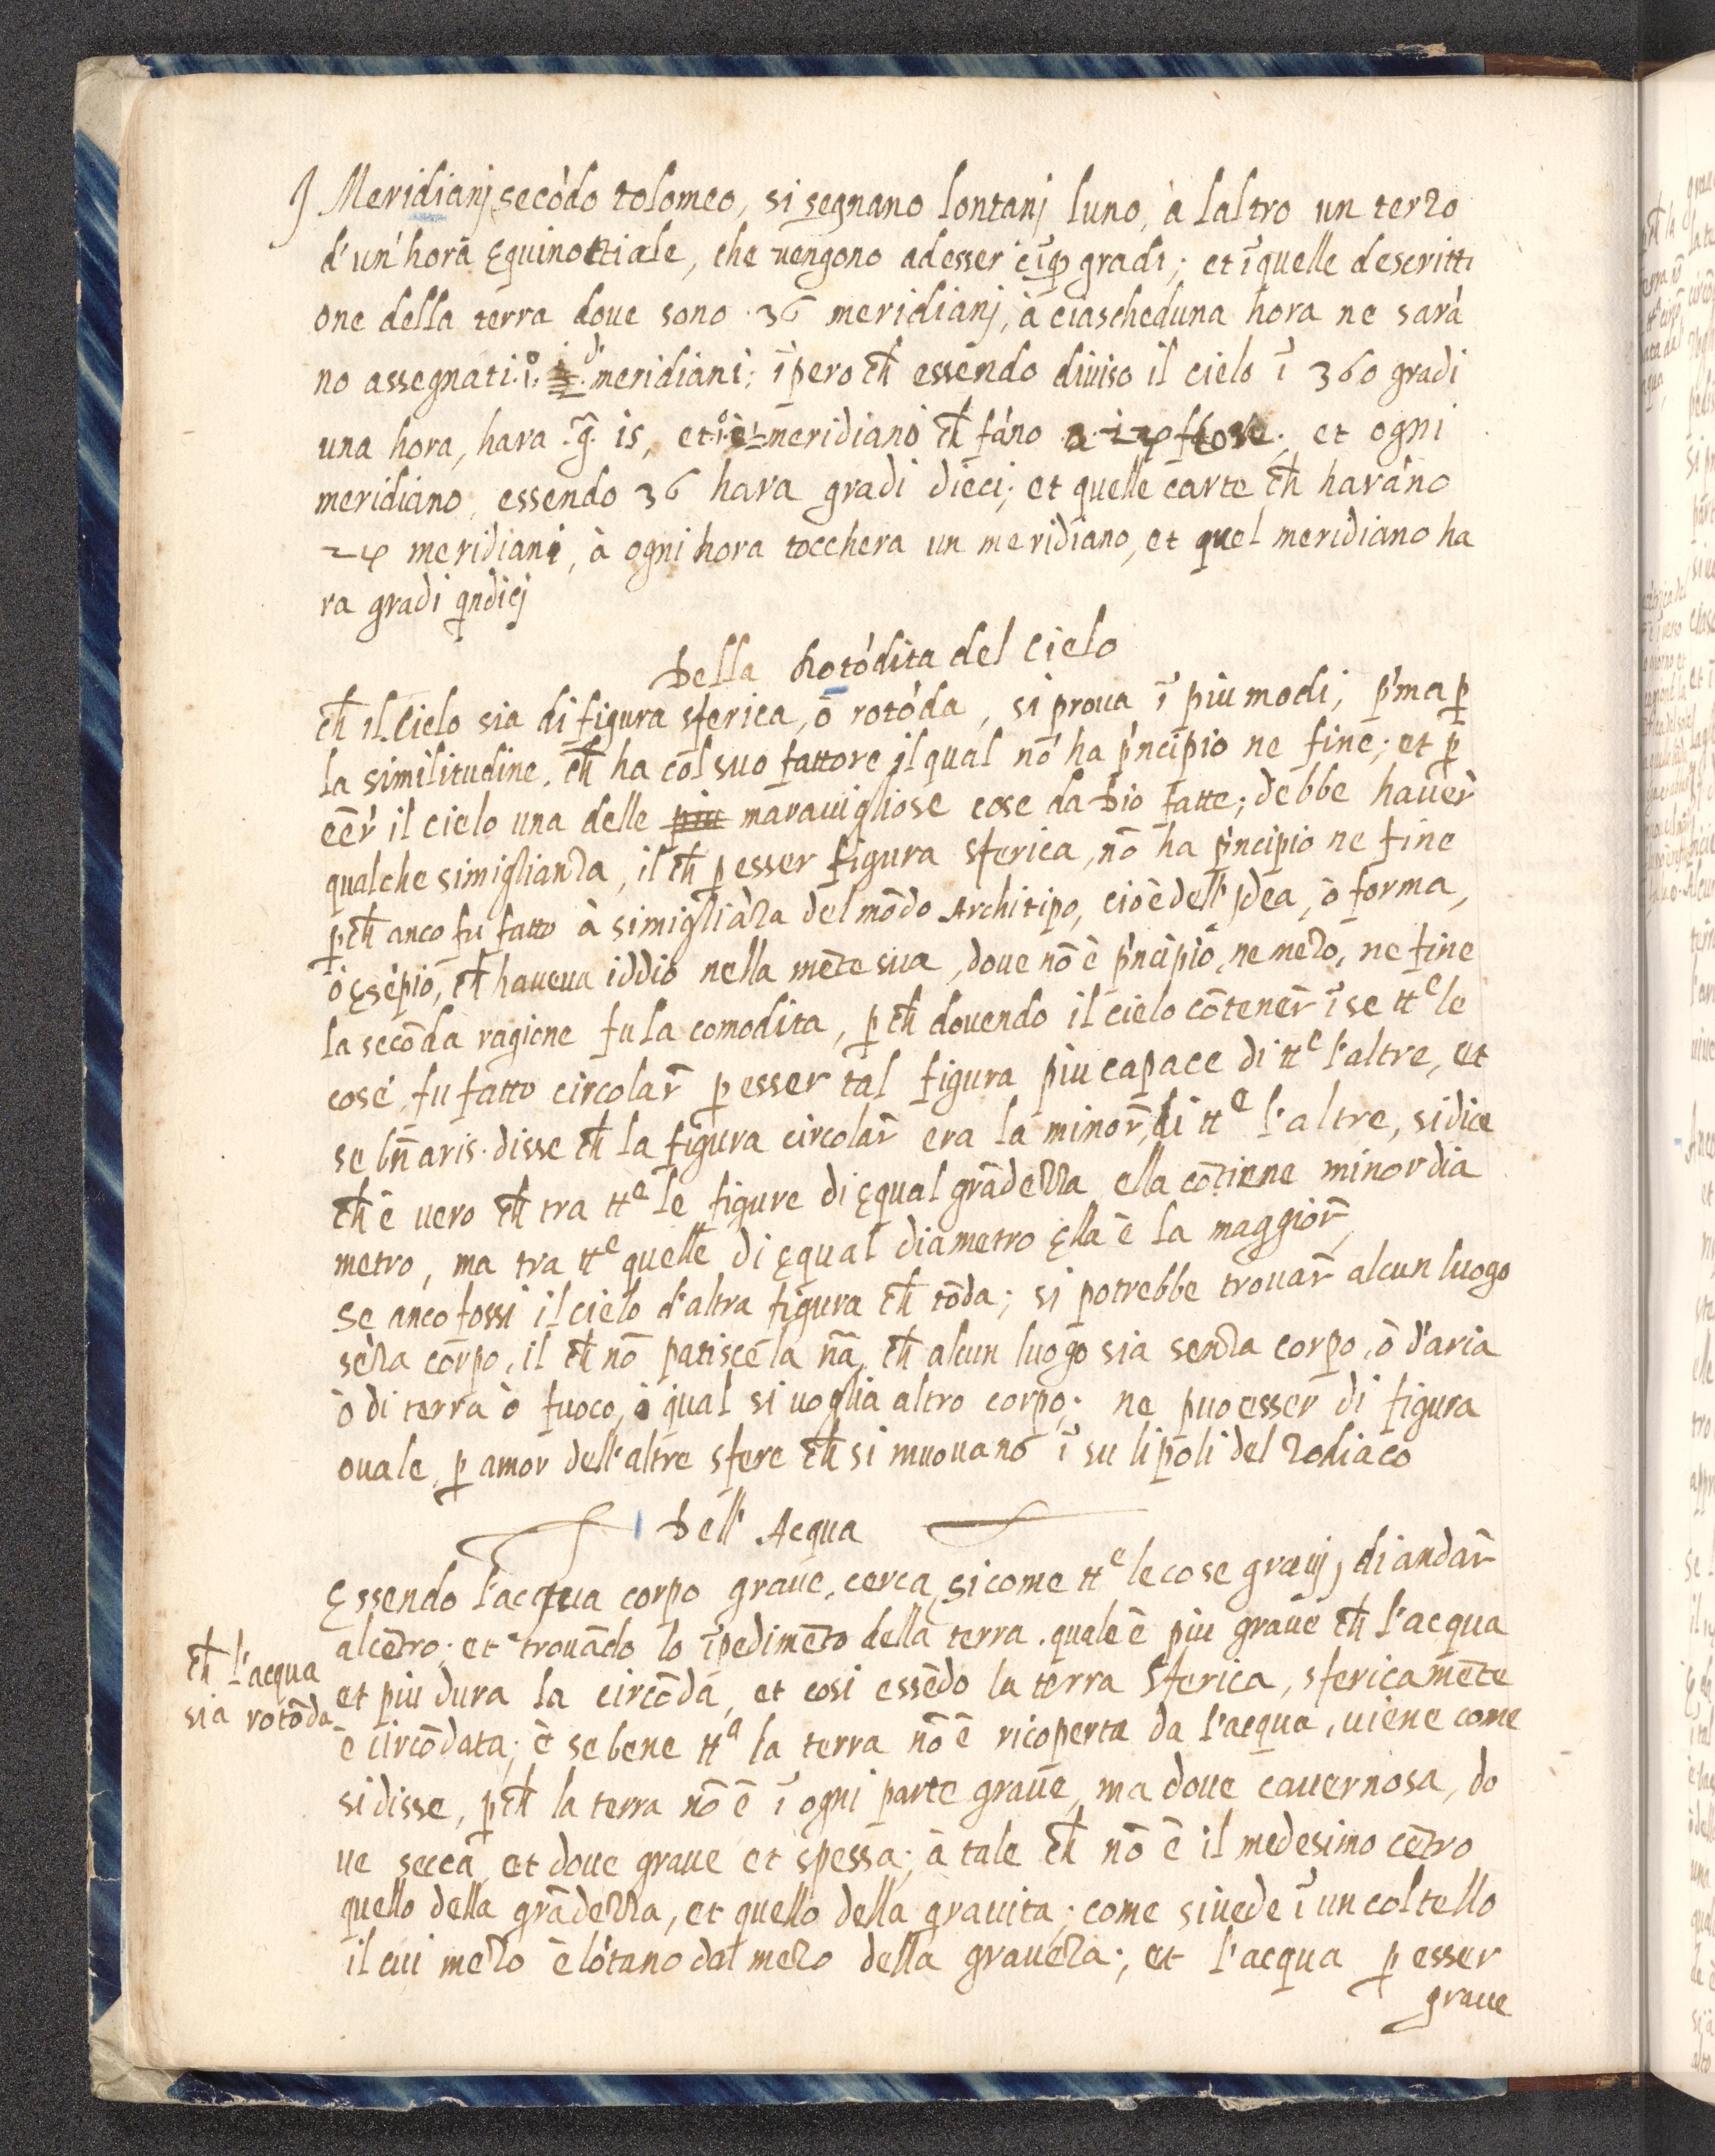 I Meridianj secõdo tolomeo, si segnano lontanj luno, à laltro un terzo
d'un'hora Equinottiale, che vengono adesser gradi; et ĩquelle descritti
one della terra doue sono 36 meridianj, à ciascheduna hora ne sarà
no assegnati meridiani; ĩpero cħ essendo diuiso il cielo ĩ 360 gradi
una hora, hara .g̃. is, et meridiano cħ fáno et ogni
meridiano, essendo 36 hara gradi dieci; et quelle carte cħ haráno
24 meridiani, à ogni hora tocchera un meridiano, et quel meridiano ha
ra gradi qndicj
Della Rotódita del Cielo
cħ il Cielo sia di figura sferica, ò rotóda, si proua ĩ piu modi, p'ma ꝑ
la similitudine. cħ ha col suo fattore il qual nõ ha p'ncipio ne fine; et ꝑ
eẽr il cielo una delle piu marauigliose cose da Dio fatte; debbe hauer̃
qualche simiglianza, il cħ ꝑ esser figura sferica, nõ ha p'ncipio ne fine
ꝑcħ anco fu fatto à simigliãza del mõdo Architipo, cioè dell' Idea, ò forma,
ò Esẽpio, cħ haueua iddio nella mẽte sua, doue nõ è p'ncipio, ne mezo, ne fine
la secõda ragione fu la comodita, ꝑcħ douendo il cielo cõtener̃ ĩ se tt^e le
cose, fu fatto circolar̃ ꝑ esser tal figura piu capace di tt^e l'altre, et
se bñ aris. disse cħ la figura circolar̃ era la minor̃ di tt^e l'altre, si dice
cħ è vero cħ tra tt^e le figure di Equal grãdezza ella cõtiene minor dia
metro, ma tra tt^e quelle di Equal diametro Ella è la maggior̃,
Se anco fossi il cielo d'altra figura cħ tõda; si potrebbe trouar̃ alcun luogo
sẽza corpo, il cħ nõ patisce la ña, cħ alcun luogo sia senza corpo, ò d'aria
ò di terra ò fuoco, ò qual si uoglia altro corpo; ne puo esser di figura
ouale, ꝑ amor dell'altre sfere cħ si muouano ĩ su li poli del Zodiaco
Dell' Acqua
Essendo l'acqua corpo graue, cerca, sicome tt^e le cose grauj, di andar̃
al cẽtro; et trouãdo lo ĩpedimẽto della terra. quale è piu graue cħ l'acqua
cħ l'acqua
sia rotõda
et piu dura la circõda, et cosi essẽdo la terra Sferica, sfericamẽte
è circõdata; è se bene tt^a la terra nõ è ricoperta da l'acqua, uiene come
si disse, ꝑcħ la terra nõ è ĩ ogni parte graue, ma doue cauernosa, do
ue secca, et doue graue et spessa; à tale cħ nõ è il medesimo cẽtro
quello della grãdezza, et quello della grauita; come siuede ĩ un coltello
il cui mezo è lõtano dal mezo della graueza; et l'acqua ꝑ esser
graue